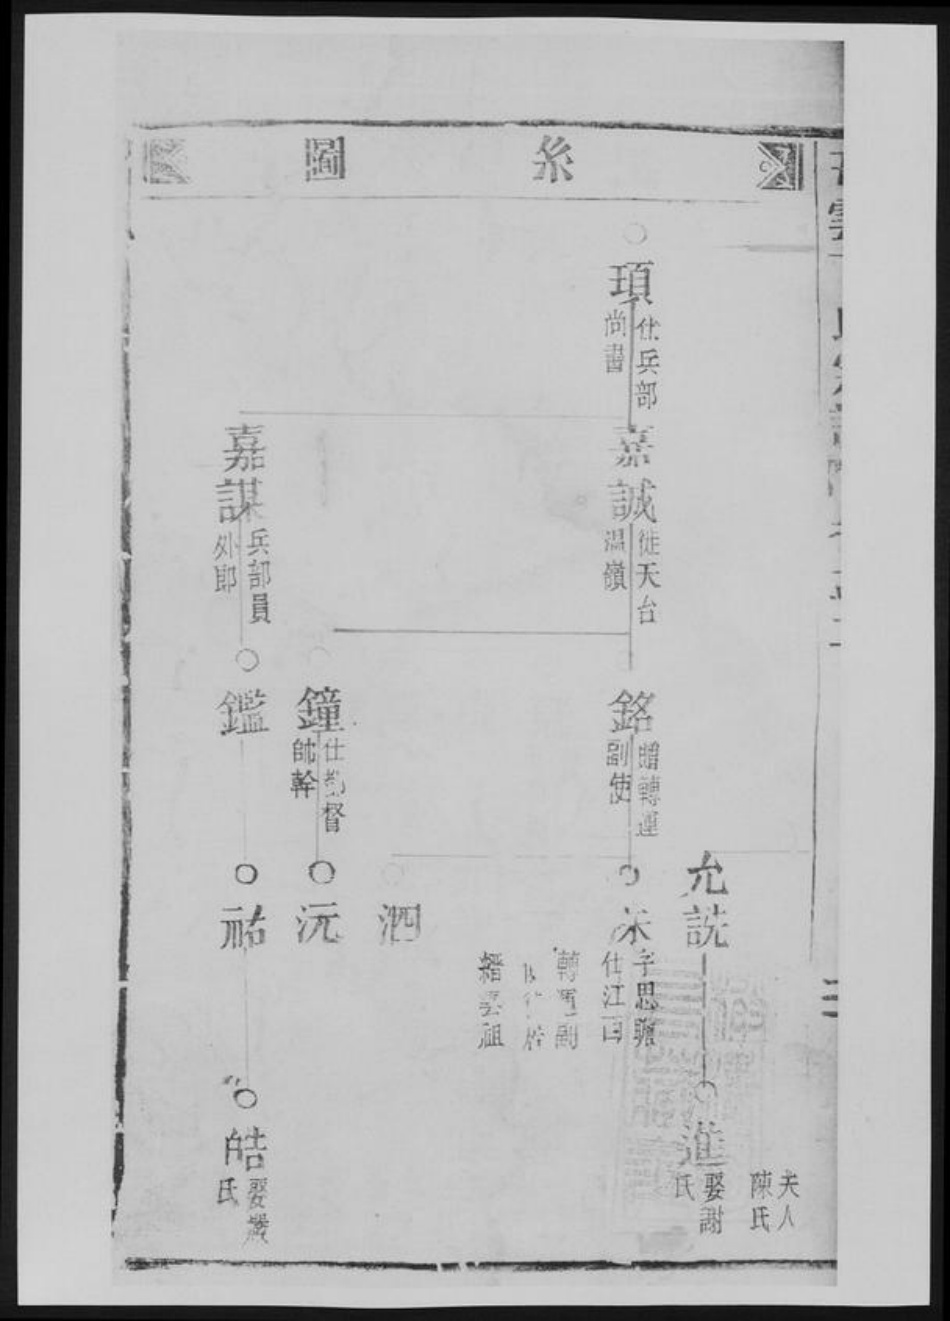 系圖
頊
仕兵部
尚書
嘉誠
徙天台
溫嶺
嘉謀
兵部員
外郎
銘
贈轉運
副使
鐘
仕都督
帥幹
鑑
允詵
字思
仕江西
轉運副
縉雲祖
泗
沅
祐
夫人
陳氏
進
娶謝
氏
皓
娶
氏